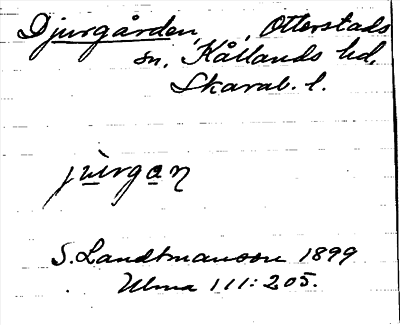 Djurgården, Otterstads
sn, Kållands hd,
Skarab. l.
S. Landtmanson 1899
Ulma 111:205.